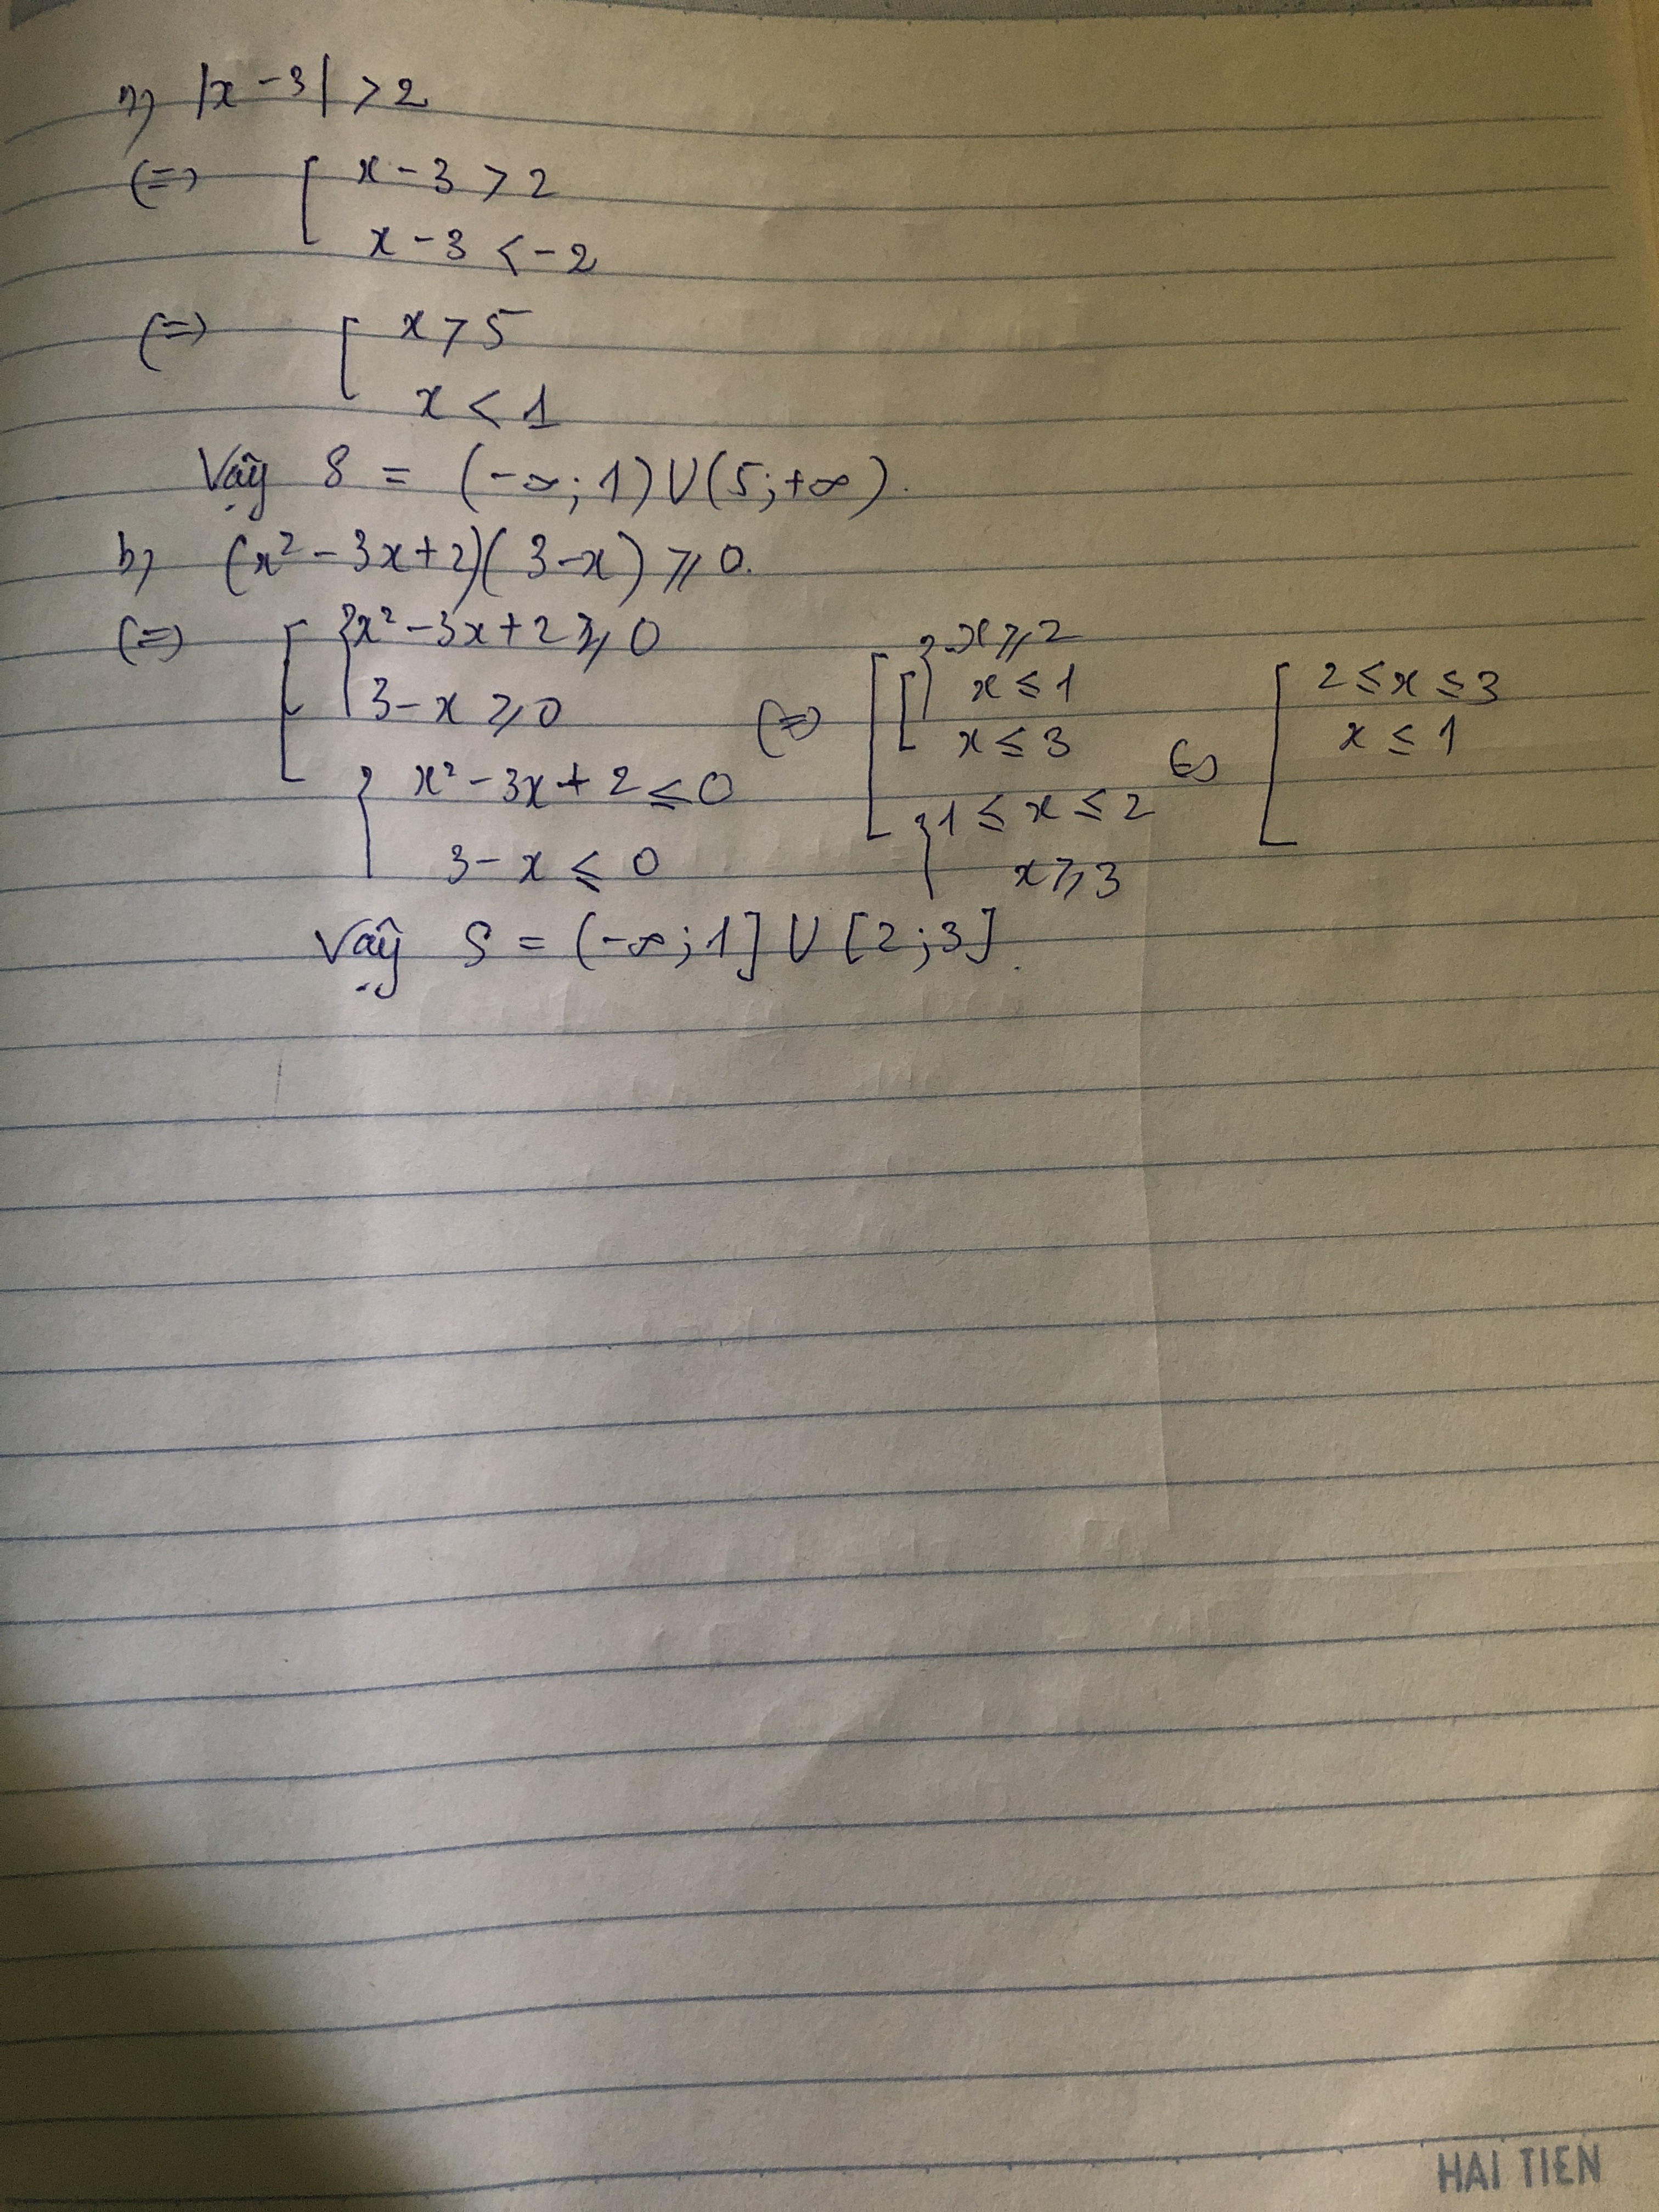 a) |x - 3| > 2
(=) [ x - 3 > 2
x - 3 < -2
(=) [ x > 5
x < 1
Vậy S = (-∞; 1) ∪ (5; +∞).
b) (x² - 3x + 2)(3 - x) ≥ 0.
(=) [ { x² - 3x + 2 ≥ 0
3 - x ≥ 0
{ x² - 3x + 2 ≤ 0
3 - x ≤ 0
(=) [ { [ x ≥ 2
x ≤ 1
x ≤ 3
{ 1 ≤ x ≤ 2
x ≥ 3
(=) [ 2 ≤ x ≤ 3
x ≤ 1
Vậy S = (-∞; 1] ∪ [2; 3].
HAI TIEN